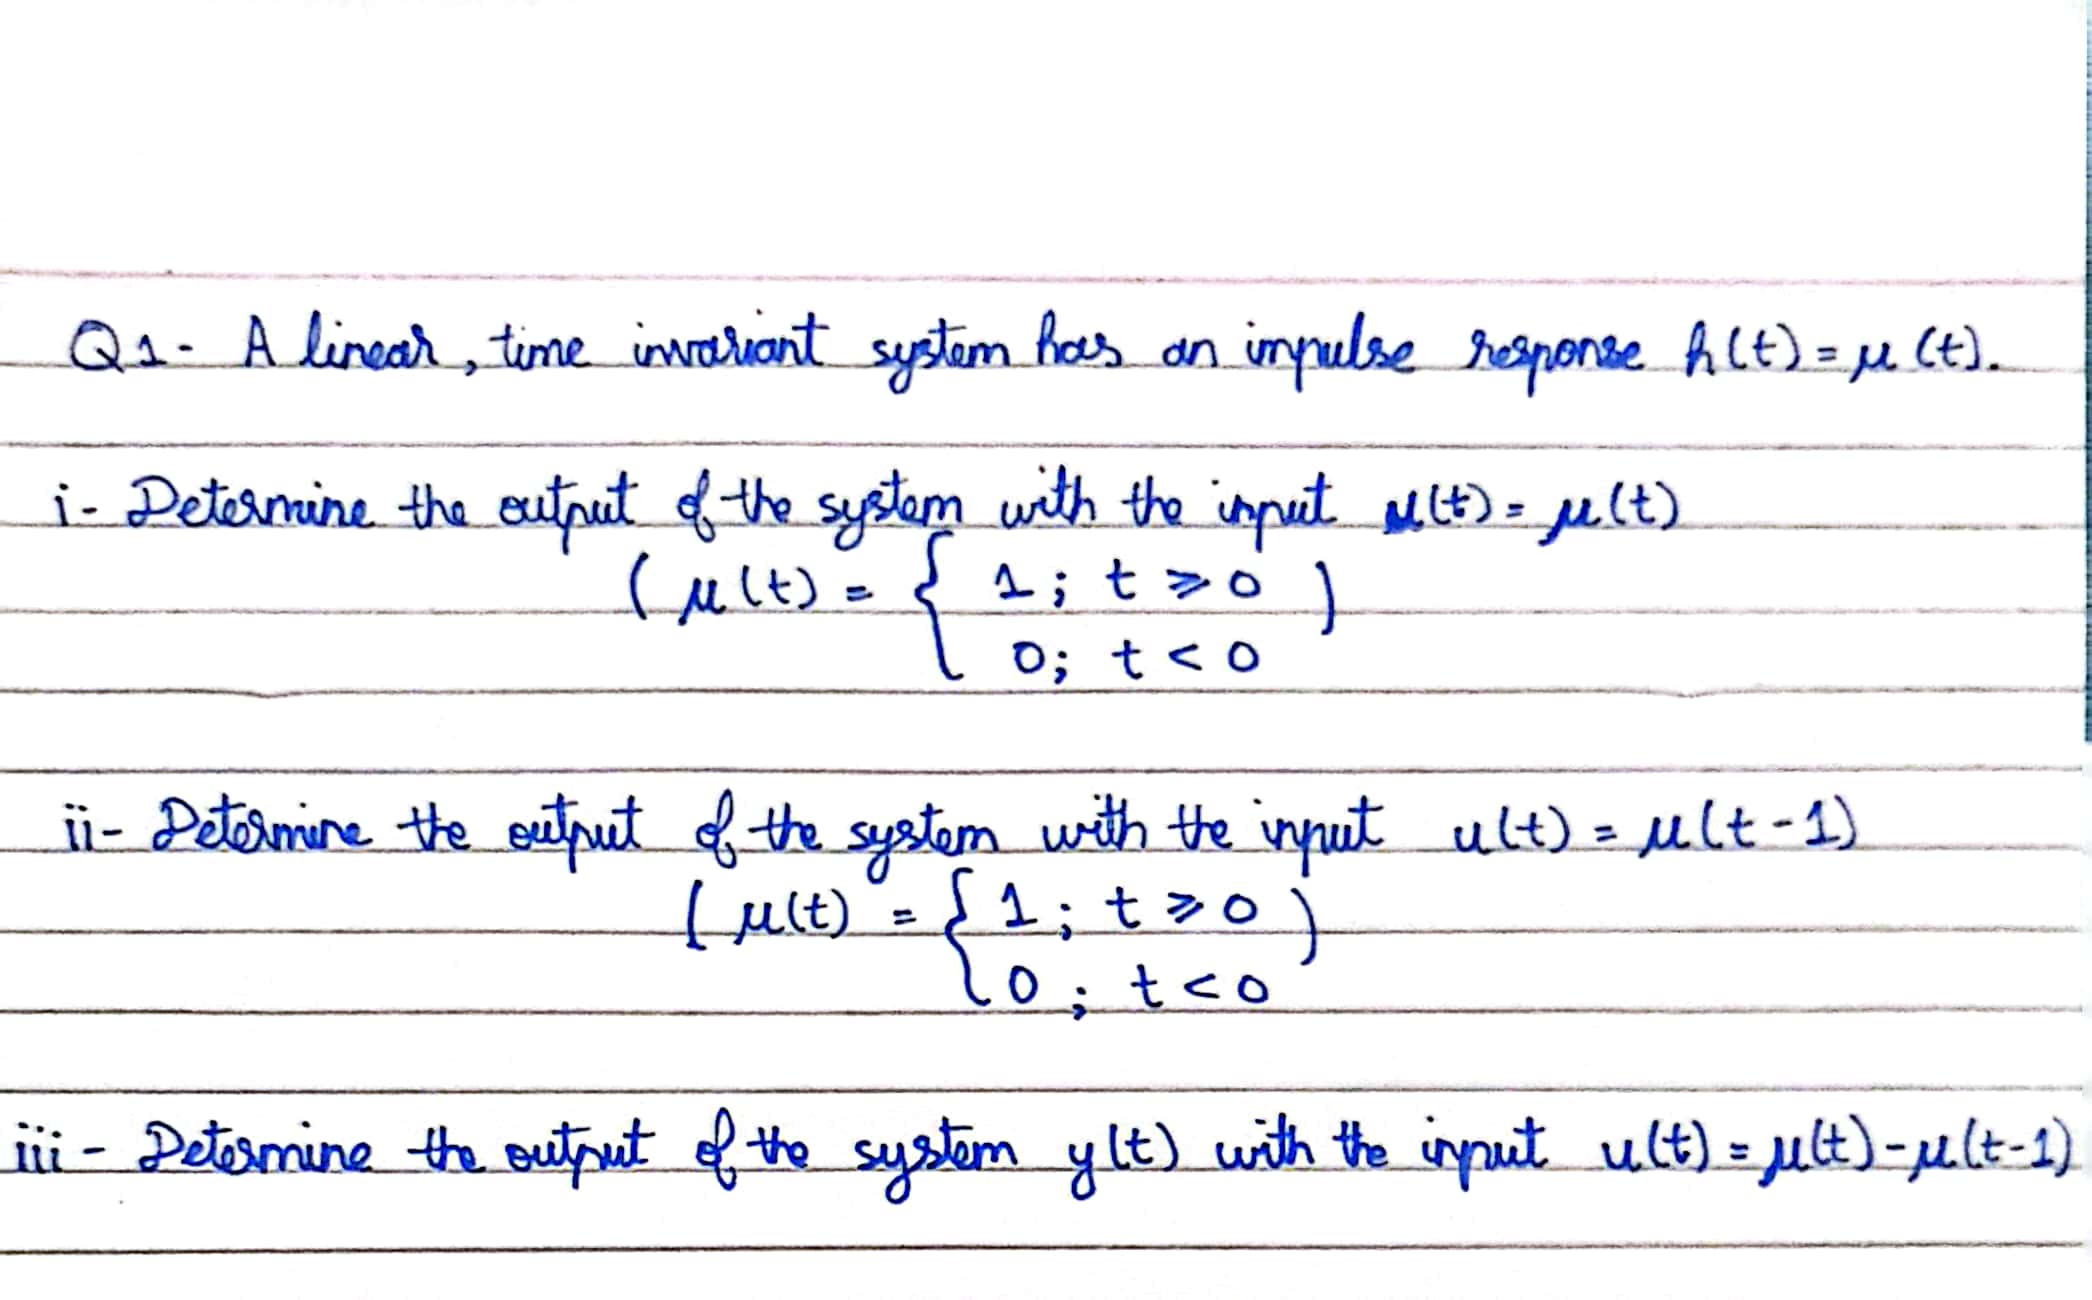 Q1- A linear, time invariant system has an impulse response h(t) = μ(t).
i- Determine the output of the system with the input u(t) = μ(t)
( μ(t) = { 1; t ⩾ 0 )
0; t < 0
ii- Determine the output of the system with the input u(t) = μ(t-1)
( μ(t) = { 1; t ⩾ 0 )
0; t < 0
iii- Determine the output of the system y(t) with the input u(t) = μ(t) - μ(t-1)